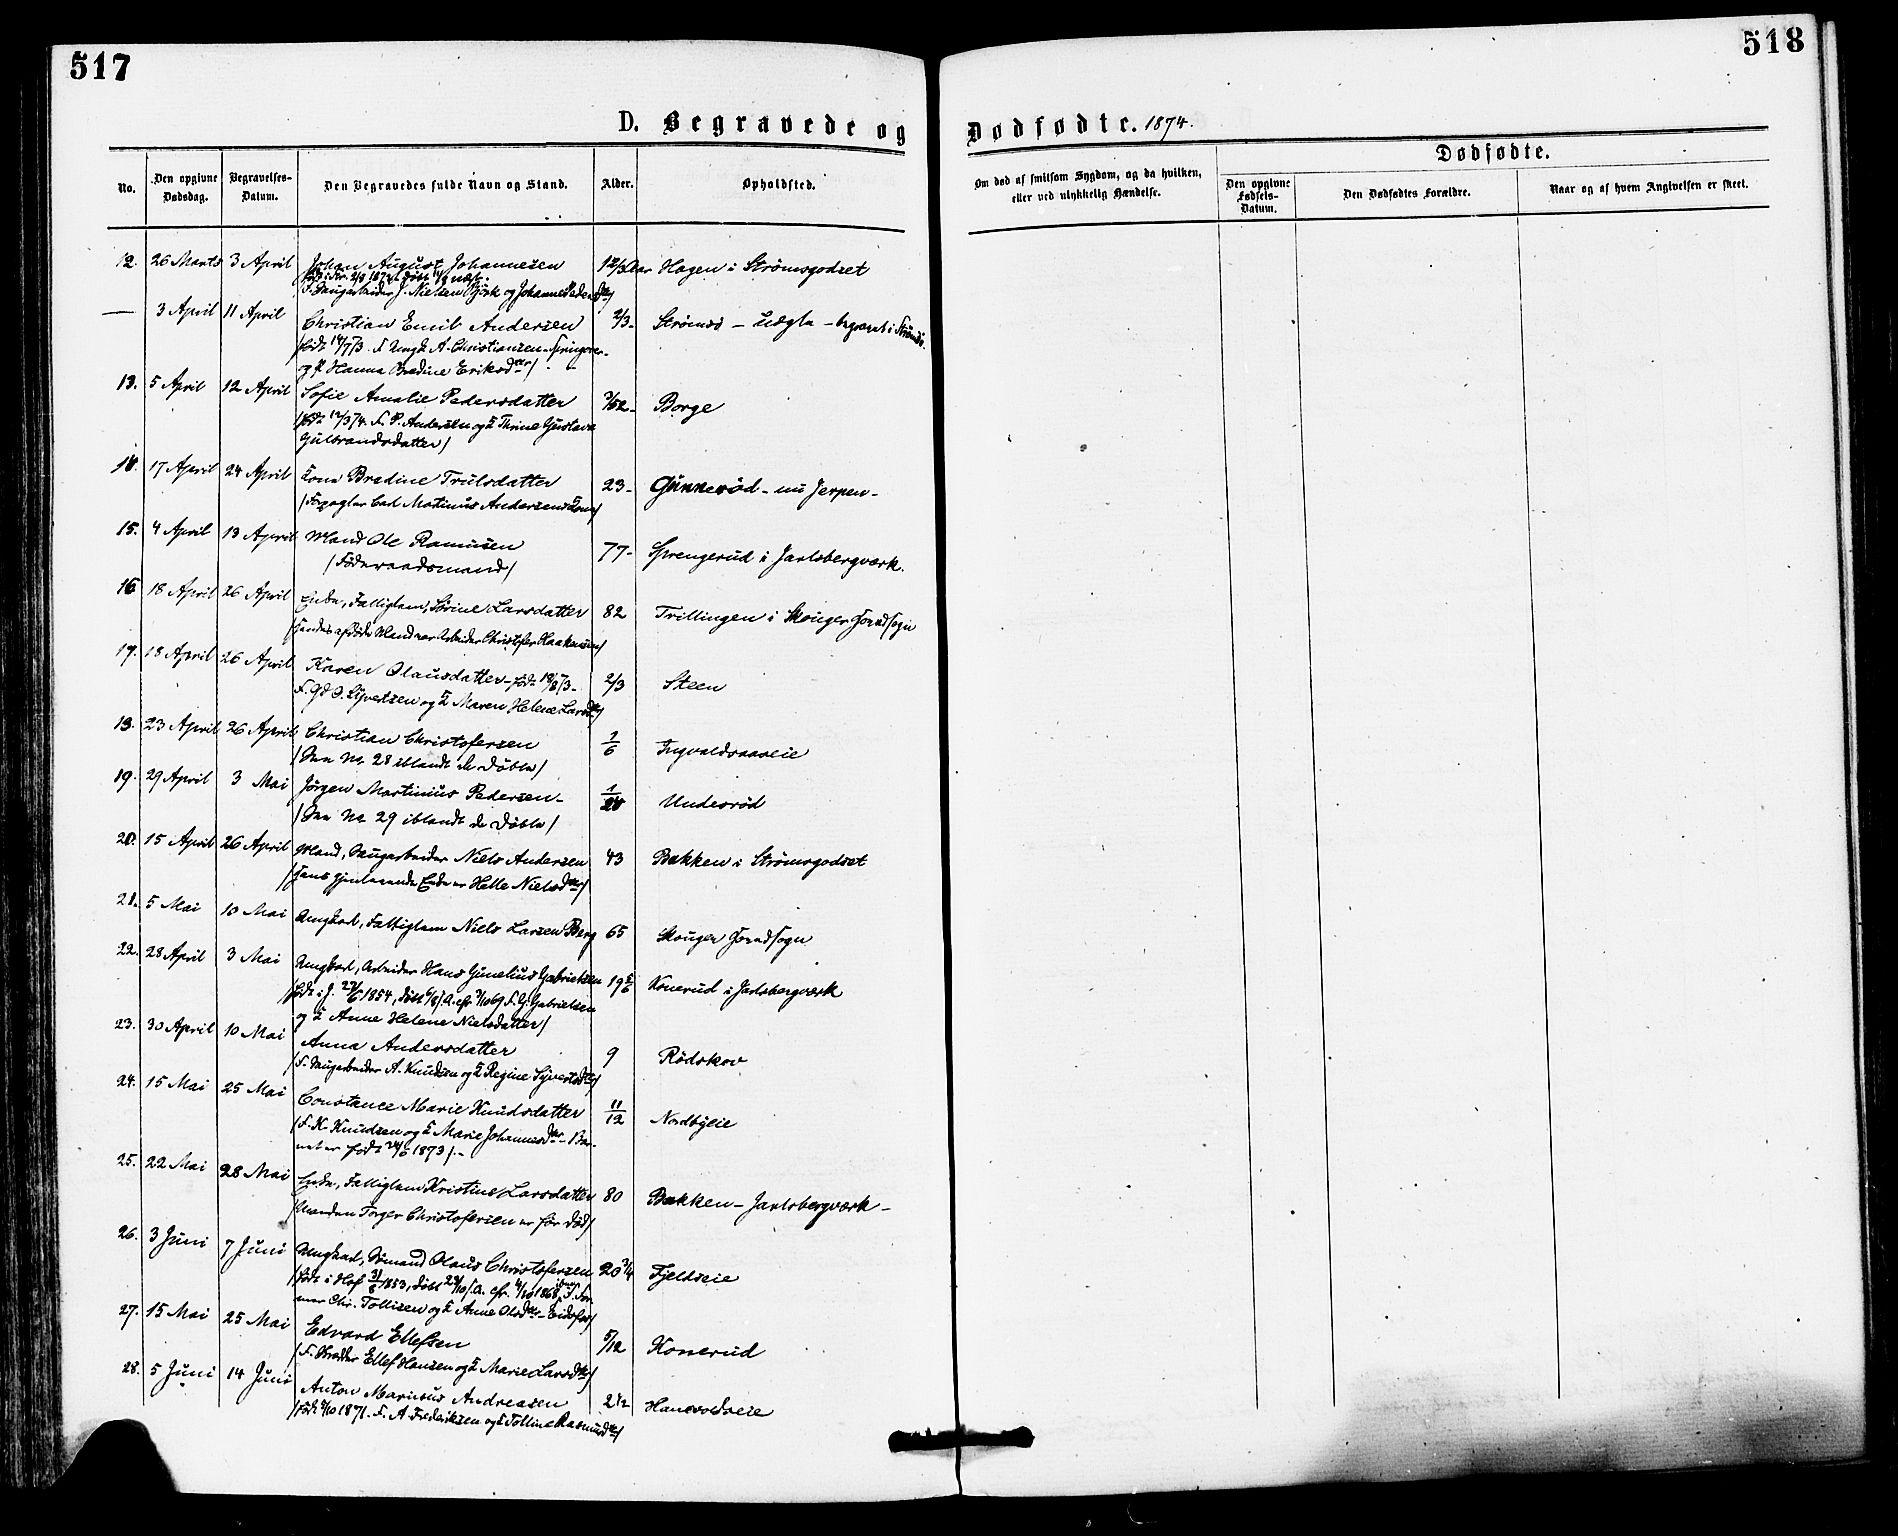 517
518
D. Begravede og Dødfødte. 1874.
No.
Den opgivne Dødsdag.
Begravelses-Datum.
Den Begravedes fulde Navn og Stand.
Alder.
Opholdsted.
Om død af smitsom Sygdom, og da hvilken, eller ved ulykkelig Hændelse.
Dødfødte.
Den opgivne Fødsels-Datum.
Den Dødfødtes Forældre.
Naar og af hvem Angivelsen er skeet.
12. 26 Marts 3 April Johan August Johannesen 1 2/3 Aar Hagen i Strømsgodset
J. Nielsen Björk og Johanne
— 3 April 11 April Christian Emil Andersen 2/3 - Strömsö - udgla - begravet i Strömsö.
født 14/7 73. F. Ungk A. Christiansen - Springer-
og P Hanna Bredine Eriksdtr/
13. 5 April 12 April Sofie Amalie Pedersdatter 3/52 - Borge
/født 12/3 74. F. P. Andersen og K Thrine Gustava
Gulbrandsdatter/
14. 17 April 24 April Kone Bredine Trulsdatter 23 - Gunneröd - nu Jerpen -
/Forpagter Carl Matinius Andersens Kone/
15. 4 April 19 April Mand Ole Ramusen 77 - Sprengerud i Jarlsbergværk.
/Föderaadsmand/
16. 18 April 26 April Enke, Fattiglem, Sörine Larsdatter 82 Trillingen i Skouger Hovedsogn
/hendes afdøde Mand var Arbeider Christofer Haakensen/
17. 18 April 26 April Karen Olausdatter - født 18/8 73 - 2/3 Steen
F. Gd O. Syvertsen og K Maren Helene Larsdtr/
18. 23 April 26 April Christian Christofersen 1/6 Ingvaldsaaseie
/See No 28 iblandt de Döbte/
19. 29 April 3 Mai Jörgen Martinius Pedersen - 1/24 Underöd
/See No 29 iblandt de Döbte/
20. 15 April 26 April Mand, Saugarbeider Niels Andersen 43 Bækken i Strömsgodset
/hans gjenlevende Enke er Helle Nielsdtr/
21. 5 Mai 10 Mai Ungkarl, Fattiglem Niels Larsen Berg 65 Skouger Hovedsogn
22. 28 April 3 Mai Ungkarl, Arbeider Hans Gunelius Gabrielsen 19 5/6 Konerud i Jarlsbergværk
1854, F. G. Gabrielsen
og K Anne Helene Nielsdatter/
23. 30 April 10 Mai Anna Andersdatter 9 Rödskov
/F. Saugarbeider A. Knudsen og K Regine Syvertsdtr/
24. 15 Mai 25 Mai Constance Marie Knudsdatter 11/12 Nordbyeie
/F. K. Knudsen og K Marie Johannesdtr - Bar-
net er født 24/6 1873/. -
25. 22 Mai 28 Mai Enke, Fattiglem Kristine Larsdatter 80 Bækken - Jarlsbergværk -
/Manden Torger Christofersen er før död/
26. 3 Juni 7 Juni Ungkarl, Sömand Olaus Christofersen 20 3/4 Fjeldseie
/født i Hof 1853, döbt
Chr. Tollisen og K Anne Olsdtr - Eidsfos/
27. 15 Mai 25 Mai Edvard Ellefsen 5/12 Konerud
Ellef Hansen og K Marie Larsdtr/
28. 5 Juni 14 Juni Anton Marinius Andreasen 2 1/2 Hanevoldseie
/född 1871. F. A Frederiksen og K Tolline Rasmusdtr/